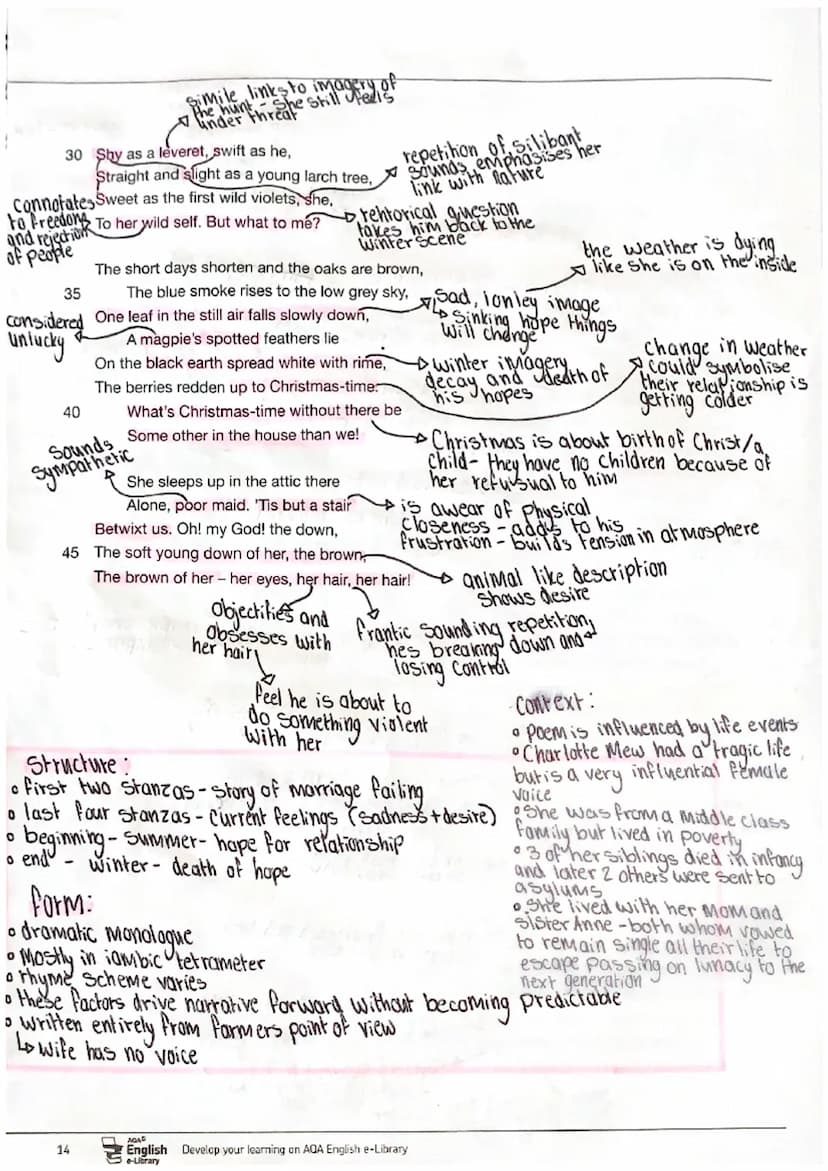 simile links to imagery of
the hunt - she still feels
under threat
30 Shy as a leveret, swift as he,
Straight and slight as a young larch tree,
Sweet as the first wild violets, she,
To her wild self. But what to me?
repetition of silibant
sounds emphasises her
link with nature
connotates
to freedom
and rejection
of people
rehtorical question
takes him back to the
winter scene
The short days shorten and the oaks are brown,
35 The blue smoke rises to the low grey sky,
One leaf in the still air falls slowly down,
A magpie's spotted feathers lie
On the black earth spread white with rime,
The berries redden up to Christmas-time.
40 What's Christmas-time without there be
Some other in the house than we!
the weather is dying
like she is on the inside
sad, lonley image
↳ Sinking hope things
will change
considered
unlucky
winter imagery
decay and death of
his hopes
Change in weather
could symbolise
their relationship is
getting colder
Christmas is about birth of Christ/a
child - they have no children because of
her refusual to him
Sounds
sympathetic
She sleeps up in the attic there
Alone, poor maid. 'Tis but a stair
Betwixt us. Oh! my God! the down,
45 The soft young down of her, the brown,
The brown of her – her eyes, her hair, her hair!
is awear of physical
closeness - adds to his
frustration - builds tension in atmosphere
animal like description
shows desire
Objectifies and
obsesses with
her hair
frantic sounding repetition,
hes breaking down and
losing control
feel he is about to
do something violent
with her
Structure:
• first two stanzas - story of marriage failing
• last four stanzas - current feelings (sadness + desire)
• beginning - summer - hope for relationship
• end - winter - death of hope
form:
• dramatic monologue
• Mostly in iambic tetrameter
• rhyme scheme varies
• these factors drive narrative forward without becoming predictable
• written entirely from farmers point of view
↳ wife has no voice
Context:
• Poem is influenced by life events
• Charlotte Mew had a tragic life
but is a very influential female
voice
• She was from a middle class
family but lived in poverty
• 3 of her siblings died in infancy
and later 2 others were sent to
asylums
• She lived with her mom and
sister Anne - both whom vowed
to remain single all their life to
escape passing on lunacy to the
next generation
14 AQA English e-Library Develop your learning on AQA English e-Library